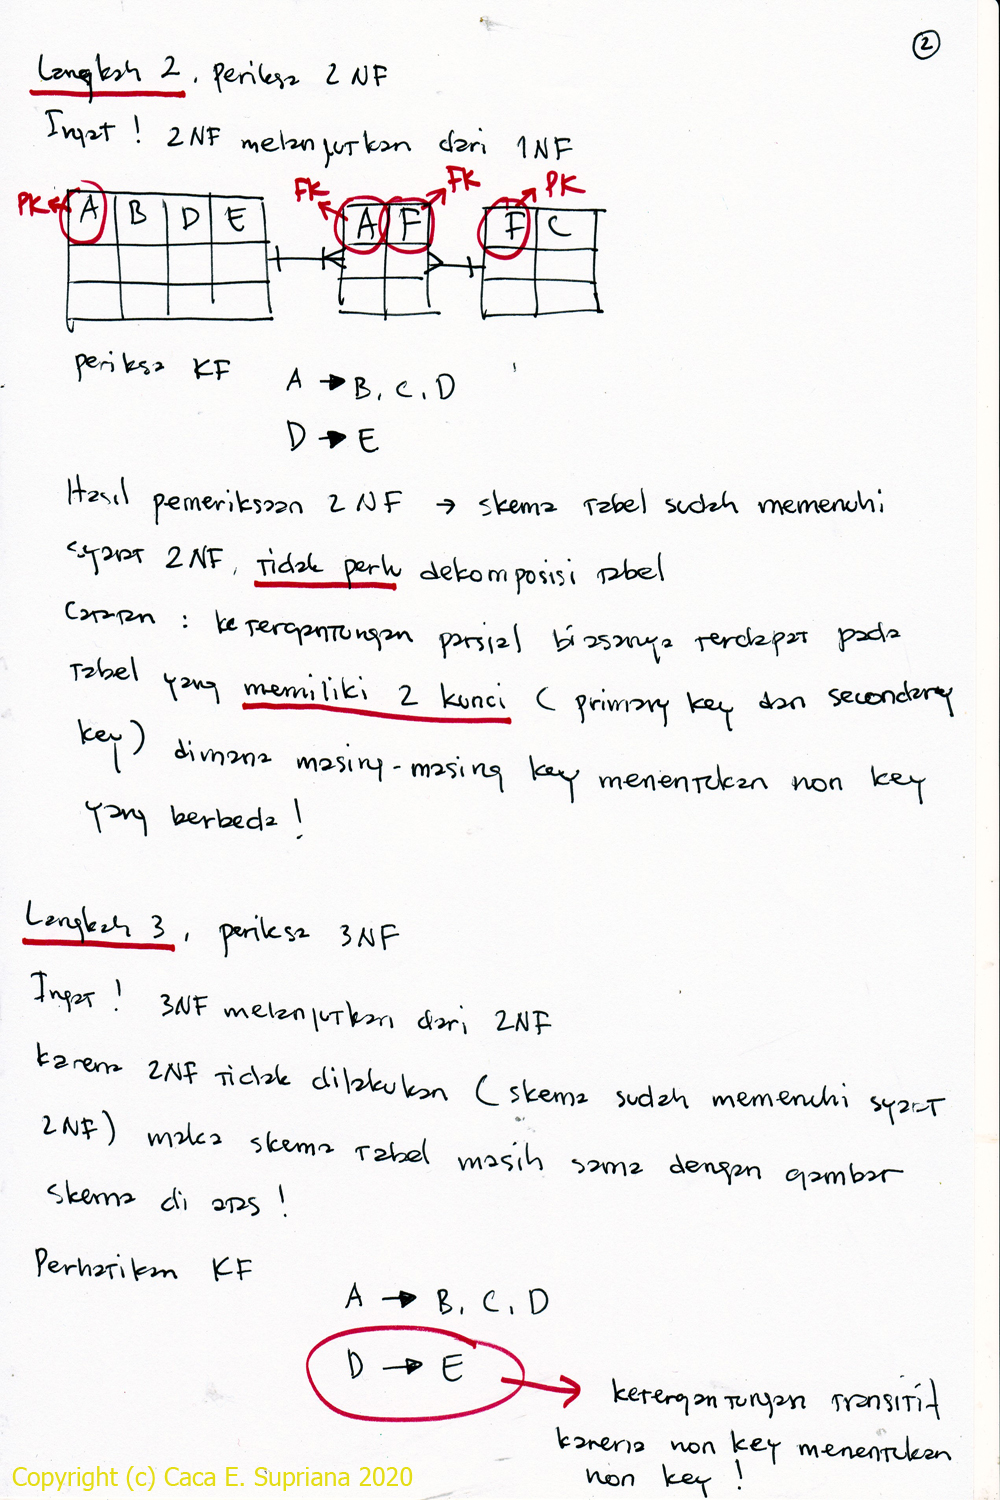 2
Langkah 2, periksa 2NF
Ingat! 2NF melanjutkan dari 1NF
PK FK FK PK
A B D E A F F C
periksa KF
A → B, C, D
D → E
Hasil pemeriksaan 2NF → skema tabel sudah memenuhi
syarat 2NF, tidak perlu dekomposisi tabel
Catatan : ketergantungan parsial biasanya terdapat pada
tabel yang memiliki 2 kunci (primary key dan secondary
key) dimana masing-masing key menentukan non key
yang berbeda!
Langkah 3, periksa 3NF
Ingat! 3NF melanjutkan dari 2NF
karena 2NF tidak dilakukan (skema sudah memenuhi syarat
2NF) maka skema tabel masih sama dengan gambar
skema di atas!
Perhatikan KF
A → B, C, D
D → E
ketergantungan transitif
karena non key menentukan
non key!
Copyright (c) Caca E. Supriana 2020